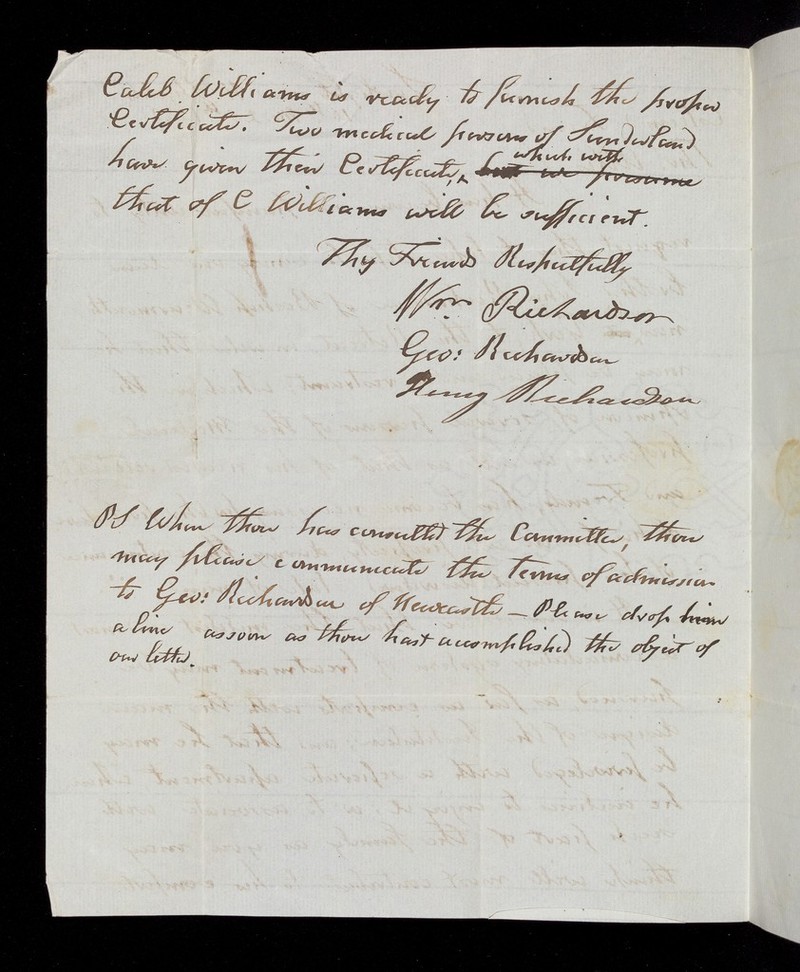 Caleb Williams is ready to furnish the proper
Certificate. Two medical persons of Sunderland
have given their Certificate, ‸ which with but we presume
that of C Williams will be sufficient.
Thy Friends Respectfully
Wm Richardson
Geo: Richardson
Henry Richardson
PS When thou has consulted the Committee, thou
may please communicate the terms of admission
to Geo: Richardson of Newcastle — Please drop him
a line as soon as thou hast accomplished the object of
our letter.